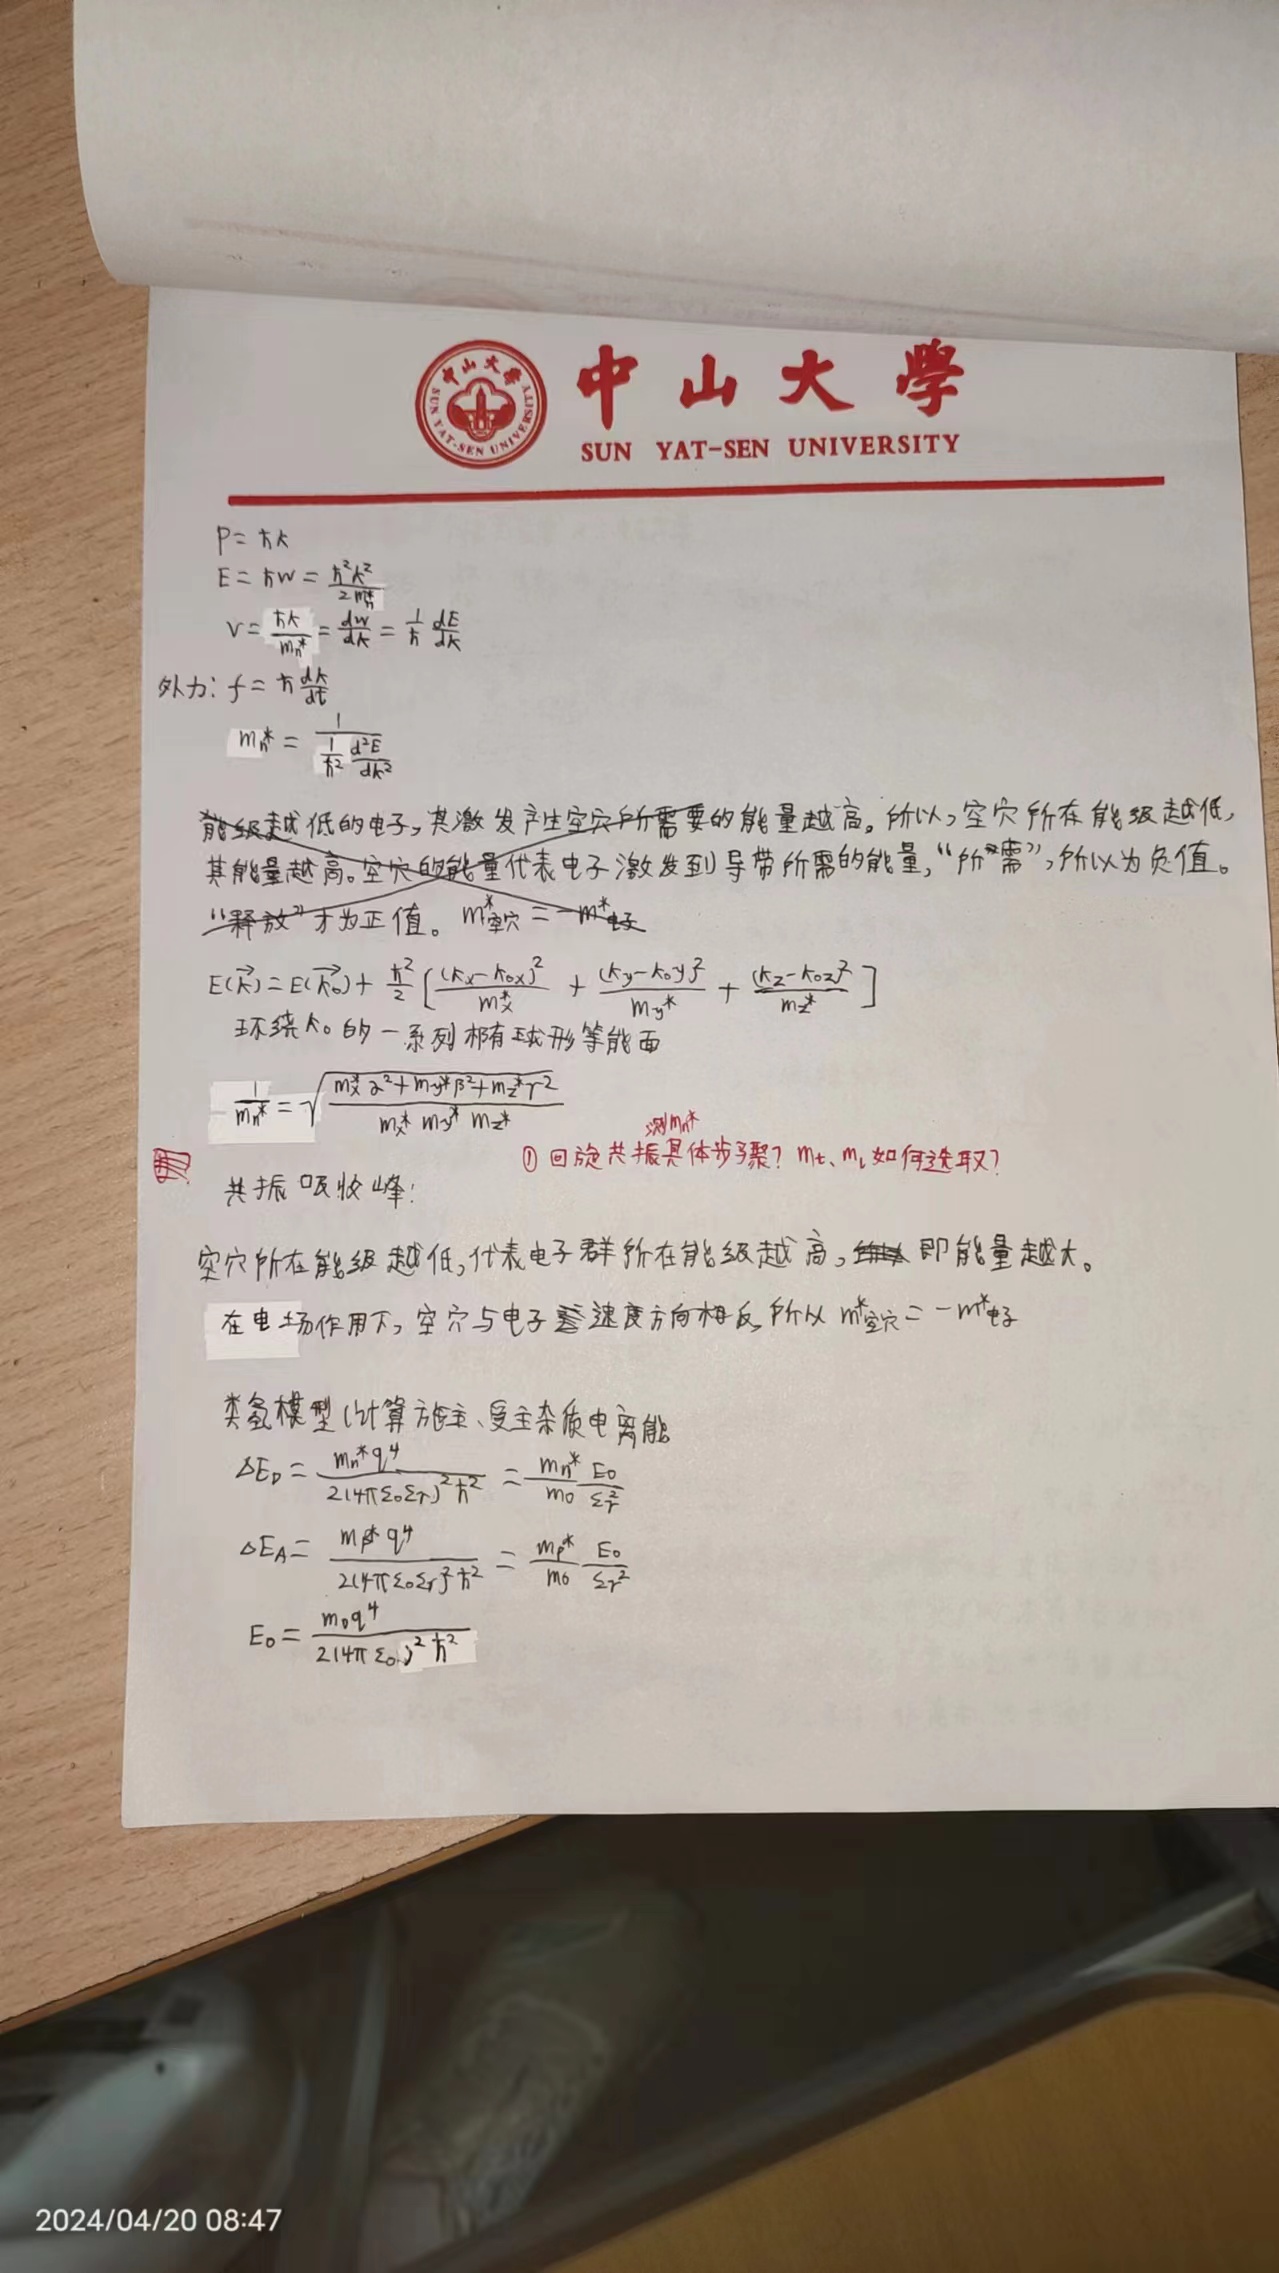 中山大学
SUN YAT-SEN UNIVERSITY
P = ħk
E = ħw = ħ²k²/2mn*
v = ħk/mn* = dw/dk = 1/ħ dE/dk
外力: f = ħ dk/dt
mn* = 1/(1/ħ² d²E/dk²)
能级越低的电子,其激发产生空穴所需要的能量越高。所以,空穴所在能级越低,
其能量越高。空穴的能量代表电子激发到导带所需的能量,“所需”,所以为负值。
“释放”才为正值。 m*空穴 = -m*电子
E(k⃗) = E(k₀⃗) + ħ²/2 [(kx-k0x)²/mx* + (ky-k0y)²/my* + (kz-k0z)²/mz*]
环绕k₀的一系列椭球形等能面
1/mn* = √((mx*α²+my*β²+mz*γ²)/(mx* my* mz*))
测mn*
① 回旋共振具体步骤? mt、ml如何选取?
共振吸收峰:
空穴所在能级越低,代表电子群所在能级越高, 即能量越大。
在电场作用下,空穴与电子 速度方向相反,所以 m*空穴 = -m*电子
类氢模型(计算施主、受主杂质电离能
ΔED = mn*q⁴/2(4πε0εr)²ħ² = mn*/m0 E0/εr²
ΔEA = mp*q⁴/2(4πε0εr)²ħ² = mp*/m0 E0/εr²
E0 = m0q⁴/2(4πε0)²ħ²
2024/04/20 08:47